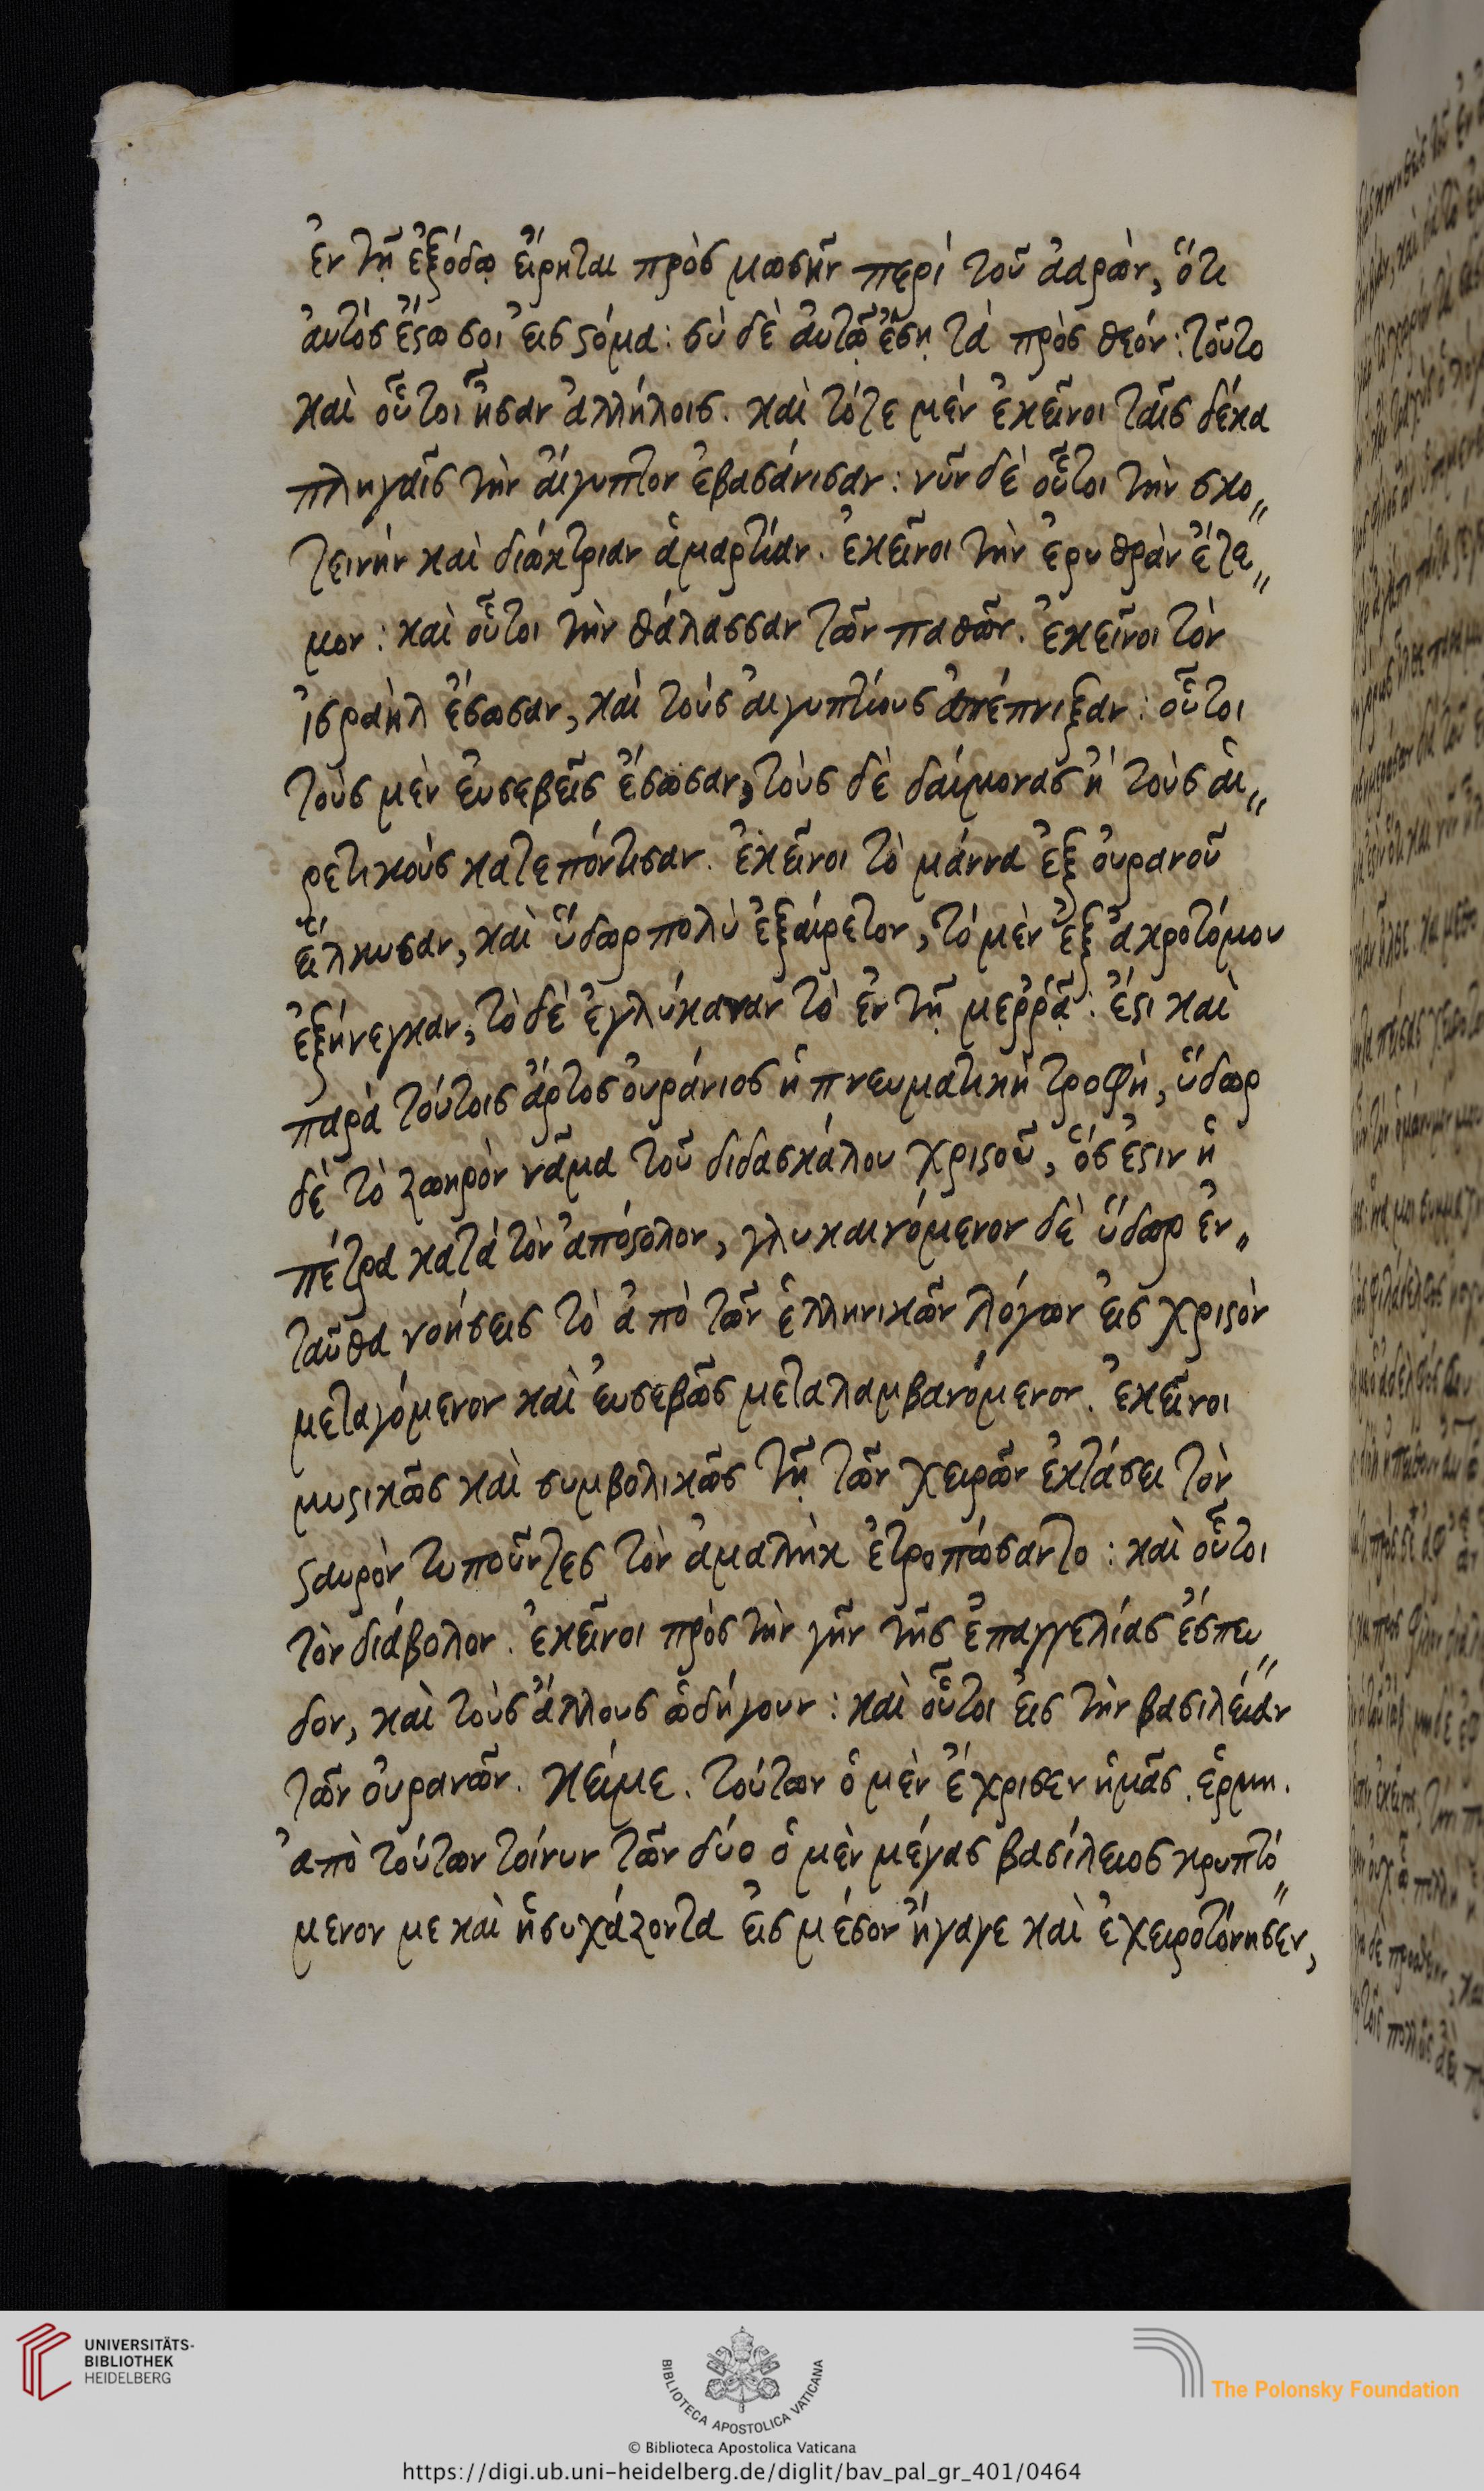 ἐν τῇ ἐξόδῳ εἴρηται πρὸς μωσῆν περὶ τοῦ ἀαρὼν, ὅτι
ἀυτός ἔςω σοι εἰς ςόμα: σὺ δὲ ἀυτῷ ἔσῃ τὰ πρὸς θεόν: τοῦτο
καὶ οὗτοι ἦσαν ἀλλήλοις. καὶ τότε μὲν ἐκεῖνοι ταῖς δέκα
πληγαῖς τὴν ἀίγυπτον ἐβασάνισαν: νῦν δὲ οὗτοι τὴν σκο„
τεινὴν καὶ διώκτριαν ἁμαρτίαν. ἐκεῖνοι τὴν ἐρυθρὰν ἔτε„
μον: καὶ οὗτοι τὴν θάλασσαν τῶν παθῶν. ἐκεῖνοι τὸν
ἰσραὴλ ἔσωσαν, καὶ τοὺς ἀιγυπτίους ἀπέπνιξαν: οὗτοι
τοὺς μὲν ἐυσεβεῖς ἔσωσαν, τοὺς δὲ δαίμονας ἢ τοὺς ἁι„
ρετικοὺς κατεπόντισαν. ἐκεῖνοι τὸ μάννα ἐξ ὀυρανοῦ
εἵλκυσαν, καὶ ὕδωρ πολὺ ἐξαίρετον, τὸ μὲν ἐξ ἀκροτόμου
ἐξήνεγκαν, τὸ δὲ ἐγλύκαναν τὸ ἐν τῇ μερρᾷ: ἔςι καὶ
παρὰ τούτοις ἄρτος ὀυράνιος ἡ πνευματικὴ τροφὴ, ὕδωρ
δὲ τὸ ζωηρὸν νᾶμα τοῦ διδασκάλου χριςοῦ, ὅς ἐςιν ἡ
πέτρα κατὰ τὸν ἀπόςολον, γλυκαινόμενον δὲ ὕδωρ ἐν„
ταῦθα νοήσεις τὸ ἀπὸ τῶν ἑλληνικῶν λόγων εἰς χριςὸν
μεταγόμενον καὶ ἐυσεβῶς μεταλαμβανόμενον. ἐκεῖνοι
μυςικῶς καὶ συμβολικῶς τῇ τῶν χειρῶν ἐκτάσει τὸν
ςαυρὸν τυποῦντες τὸν ἀμαλὴκ ἐτροπώσαντο: καὶ οὗτοι
τὸν διάβολον. ἐκεῖνοι πρὸς τὴν γῆν τῆς ἐπαγγελίας ἔσπευ„
δον, καὶ τοὺς ἄλλους ὡδήγουν: καὶ οὗτοι εἰς τὴν βασιλείαν
τῶν ὀυρανῶν. κείμε. τούτων ὁ μὲν ἔχρισεν ἡμᾶς. ἑρμη.
ἀπὸ τούτων τοίνυν τῶν δύο ὁ μὲν μέγας βασίλειος κρυπτό„
μενον με καὶ ἡσυχάζοντα εἰς μέσον ἤγαγε καὶ ἐχειροτόνησεν,
UNIVERSITÄTS-
BIBLIOTHEK
HEIDELBERG
BIBLIOTECA APOSTOLICA VATICANA
The Polonsky Foundation
© Biblioteca Apostolica Vaticana
https://digi.ub.uni-heidelberg.de/diglit/bav_pal_gr_401/0464